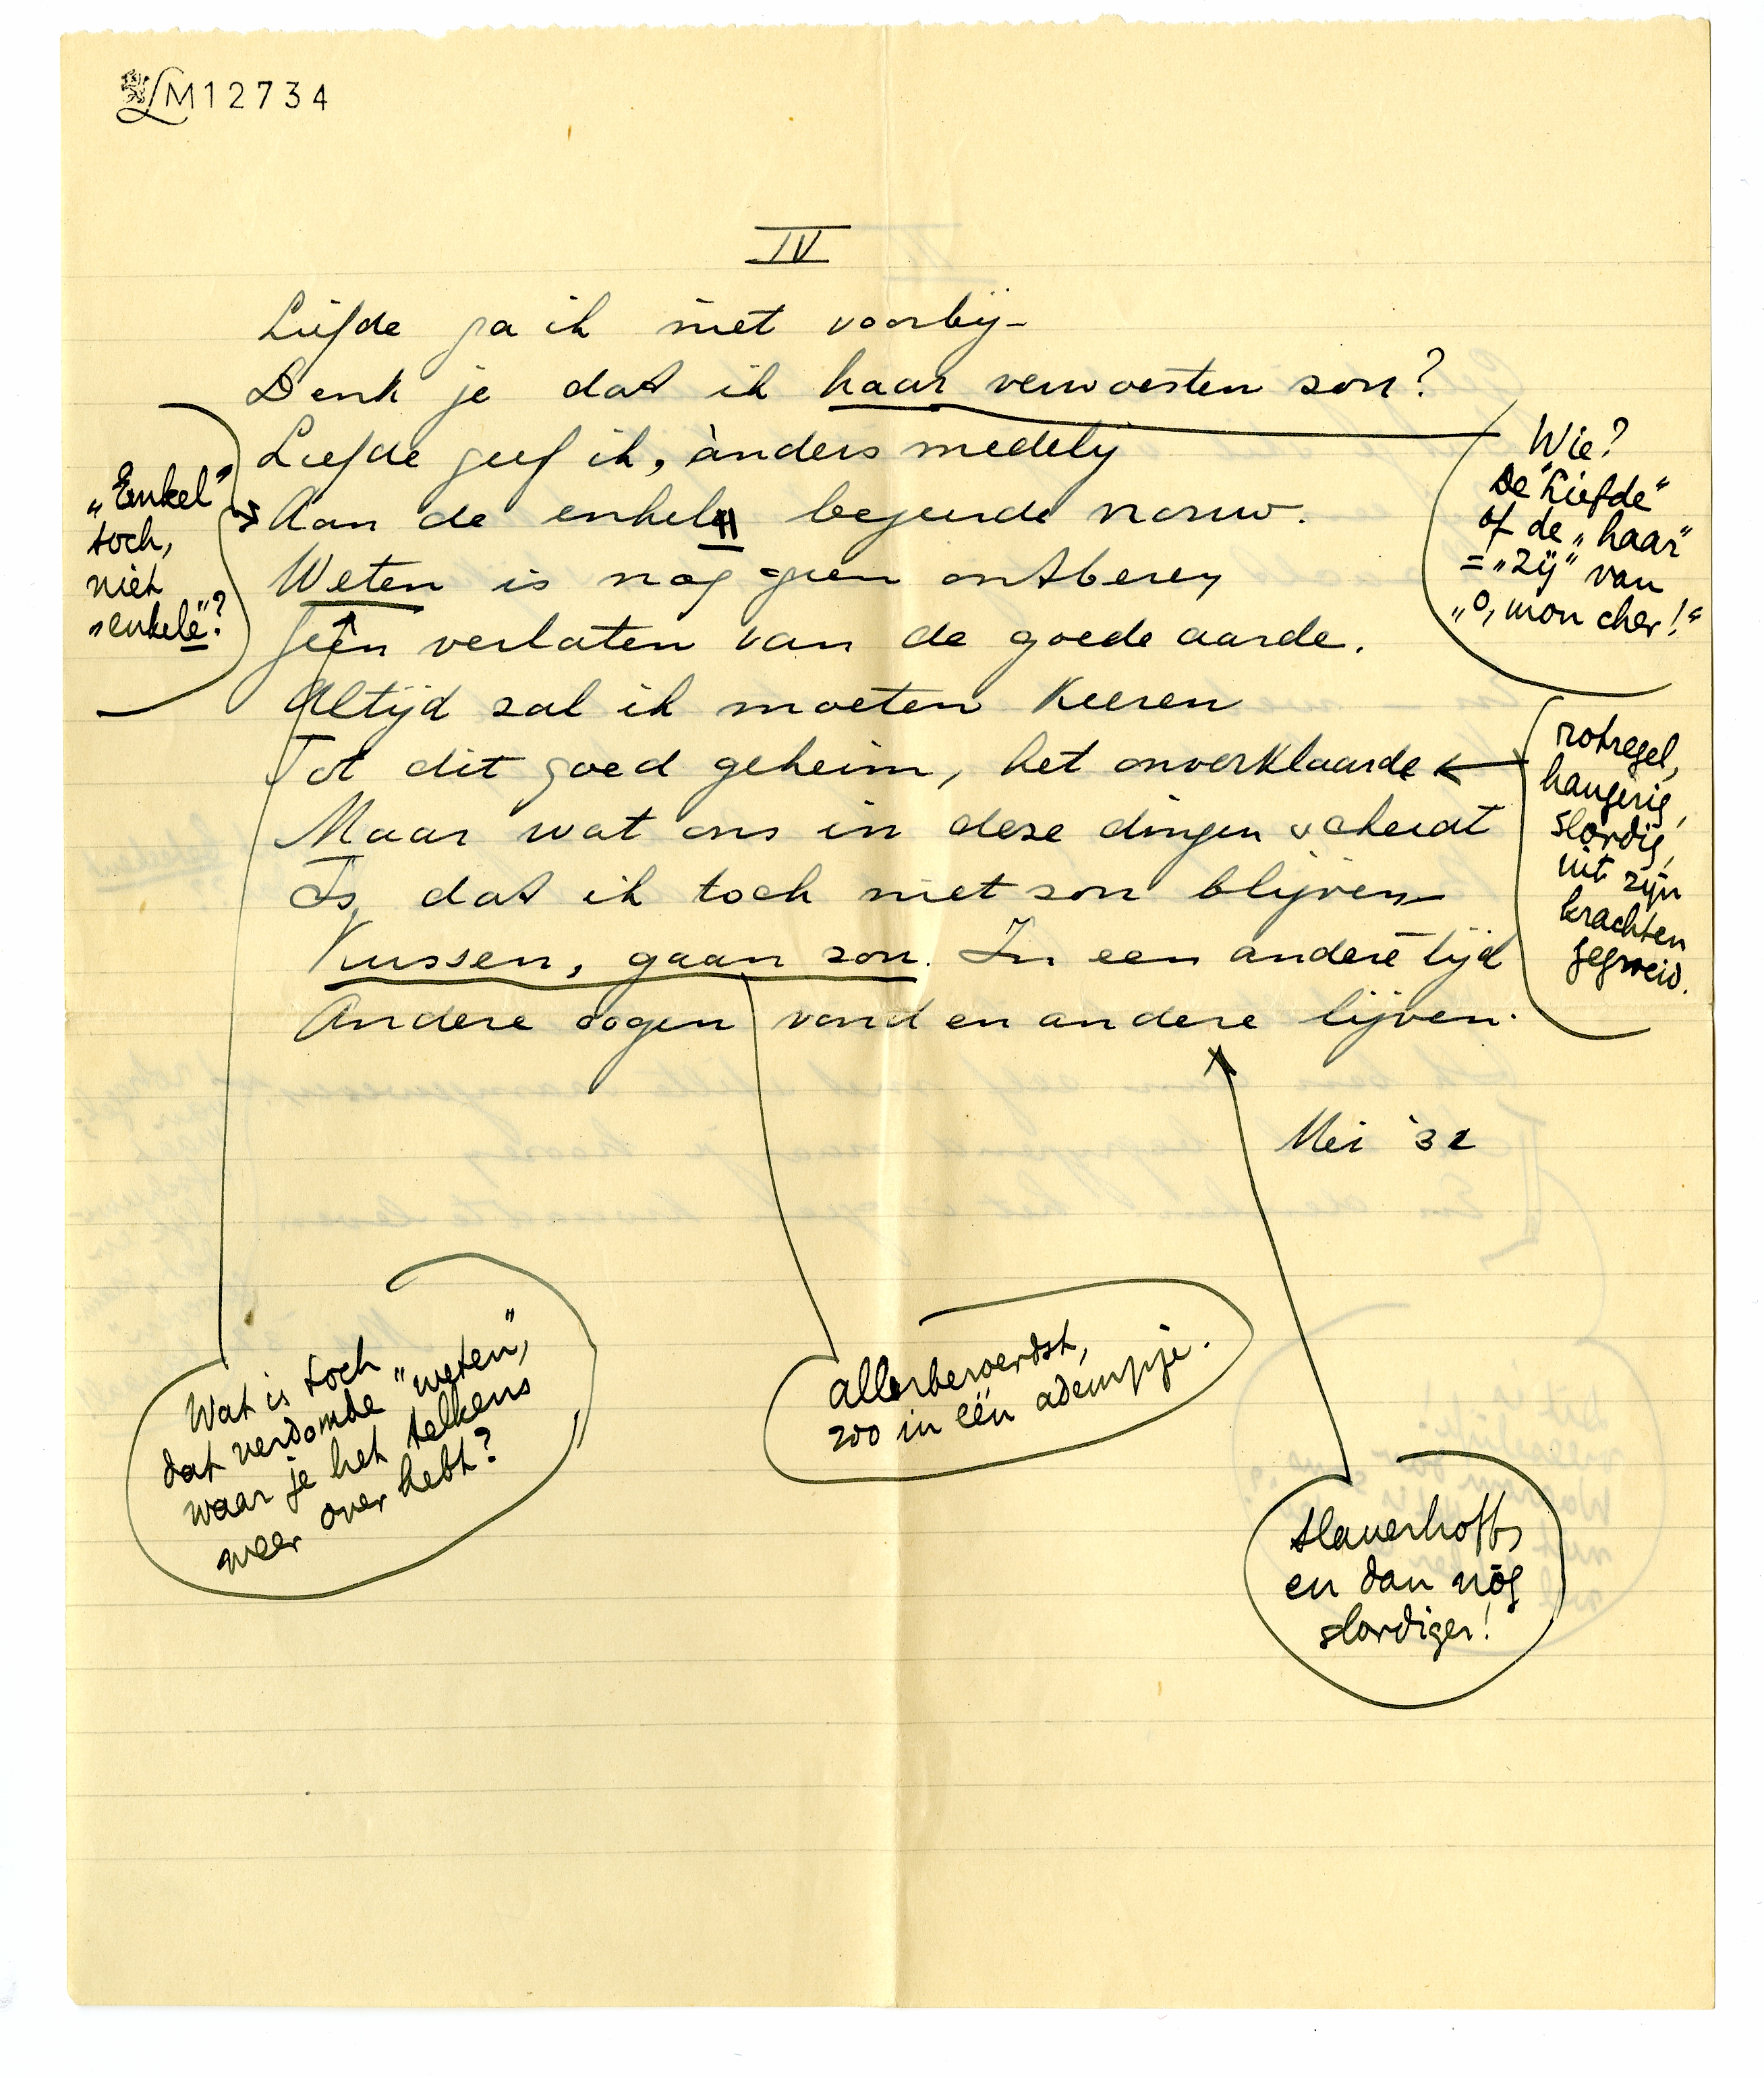 LM12734
IV
Liefde ga ik niet voorbij –
Denk je dat ik haar verwoesten zou?
Liefde geef ik, ànders medelij
Aan de enkele begeerde vrouw.
Weten is nog geen ontberen
Geen verlaten van de goede aarde.
Altijd zal ik moeten keeren
Tot dit goed geheim, het onverklaarde
Maar wat ons in deze dingen scheidt
Is, dat ik toch niet zou blijven
Kussen, gaan zou. In een andere tijd
Andere oogen vond en andere lijven.
Mei '32
„Enkel"
toch,
niet
„enkele"?
Wie?
De „Liefde"
of de „haar"
= „zij" van
„o, mon cher!"
rotregel,
hangerig,
slordig,
uit zijn
krachten
gegroeid.
Wat is toch
dat verdomde „weten",
waar je het telkens
weer over hebt?
allerberoerdst,
zoo in één adempje.
Slauerhoff,
en dan nóg
slordiger!